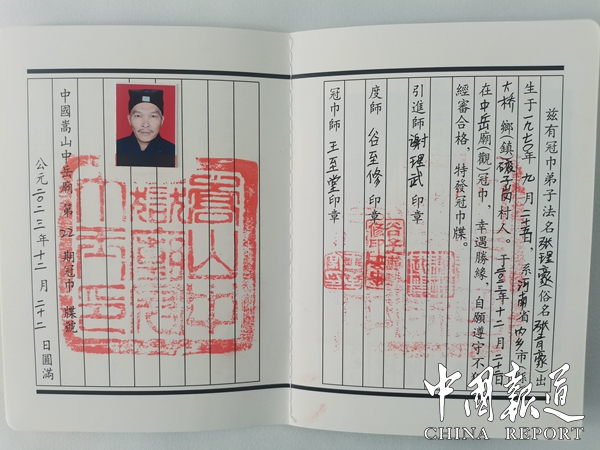 兹有冠巾弟子法名张理豪(俗名張青豪)出
生于一九七〇年九月二十五,系河南省内乡市(县)
大桥鄉(鎮)磙子岗村人。于二〇二三年十二月二十二日
在中岳廟(觀)冠巾,幸遇勝緣,自願遵守不
經審合格,特發冠巾牒。
引進師謝理武印章
度師谷至修印章
冠巾師王至堂印章
中國嵩山中岳廟第22期冠巾牒號
公元二〇二三年十二月二十二日圓滿
中國報道
CHINA REPORT